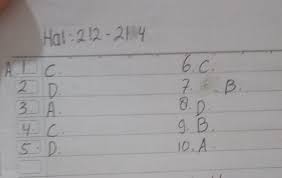 Hal : 212 - 214
A. 1. C.
2. D.
3. A.
4. C.
5. D.
6. C.
7. B.
8. D.
9. B.
10. A.